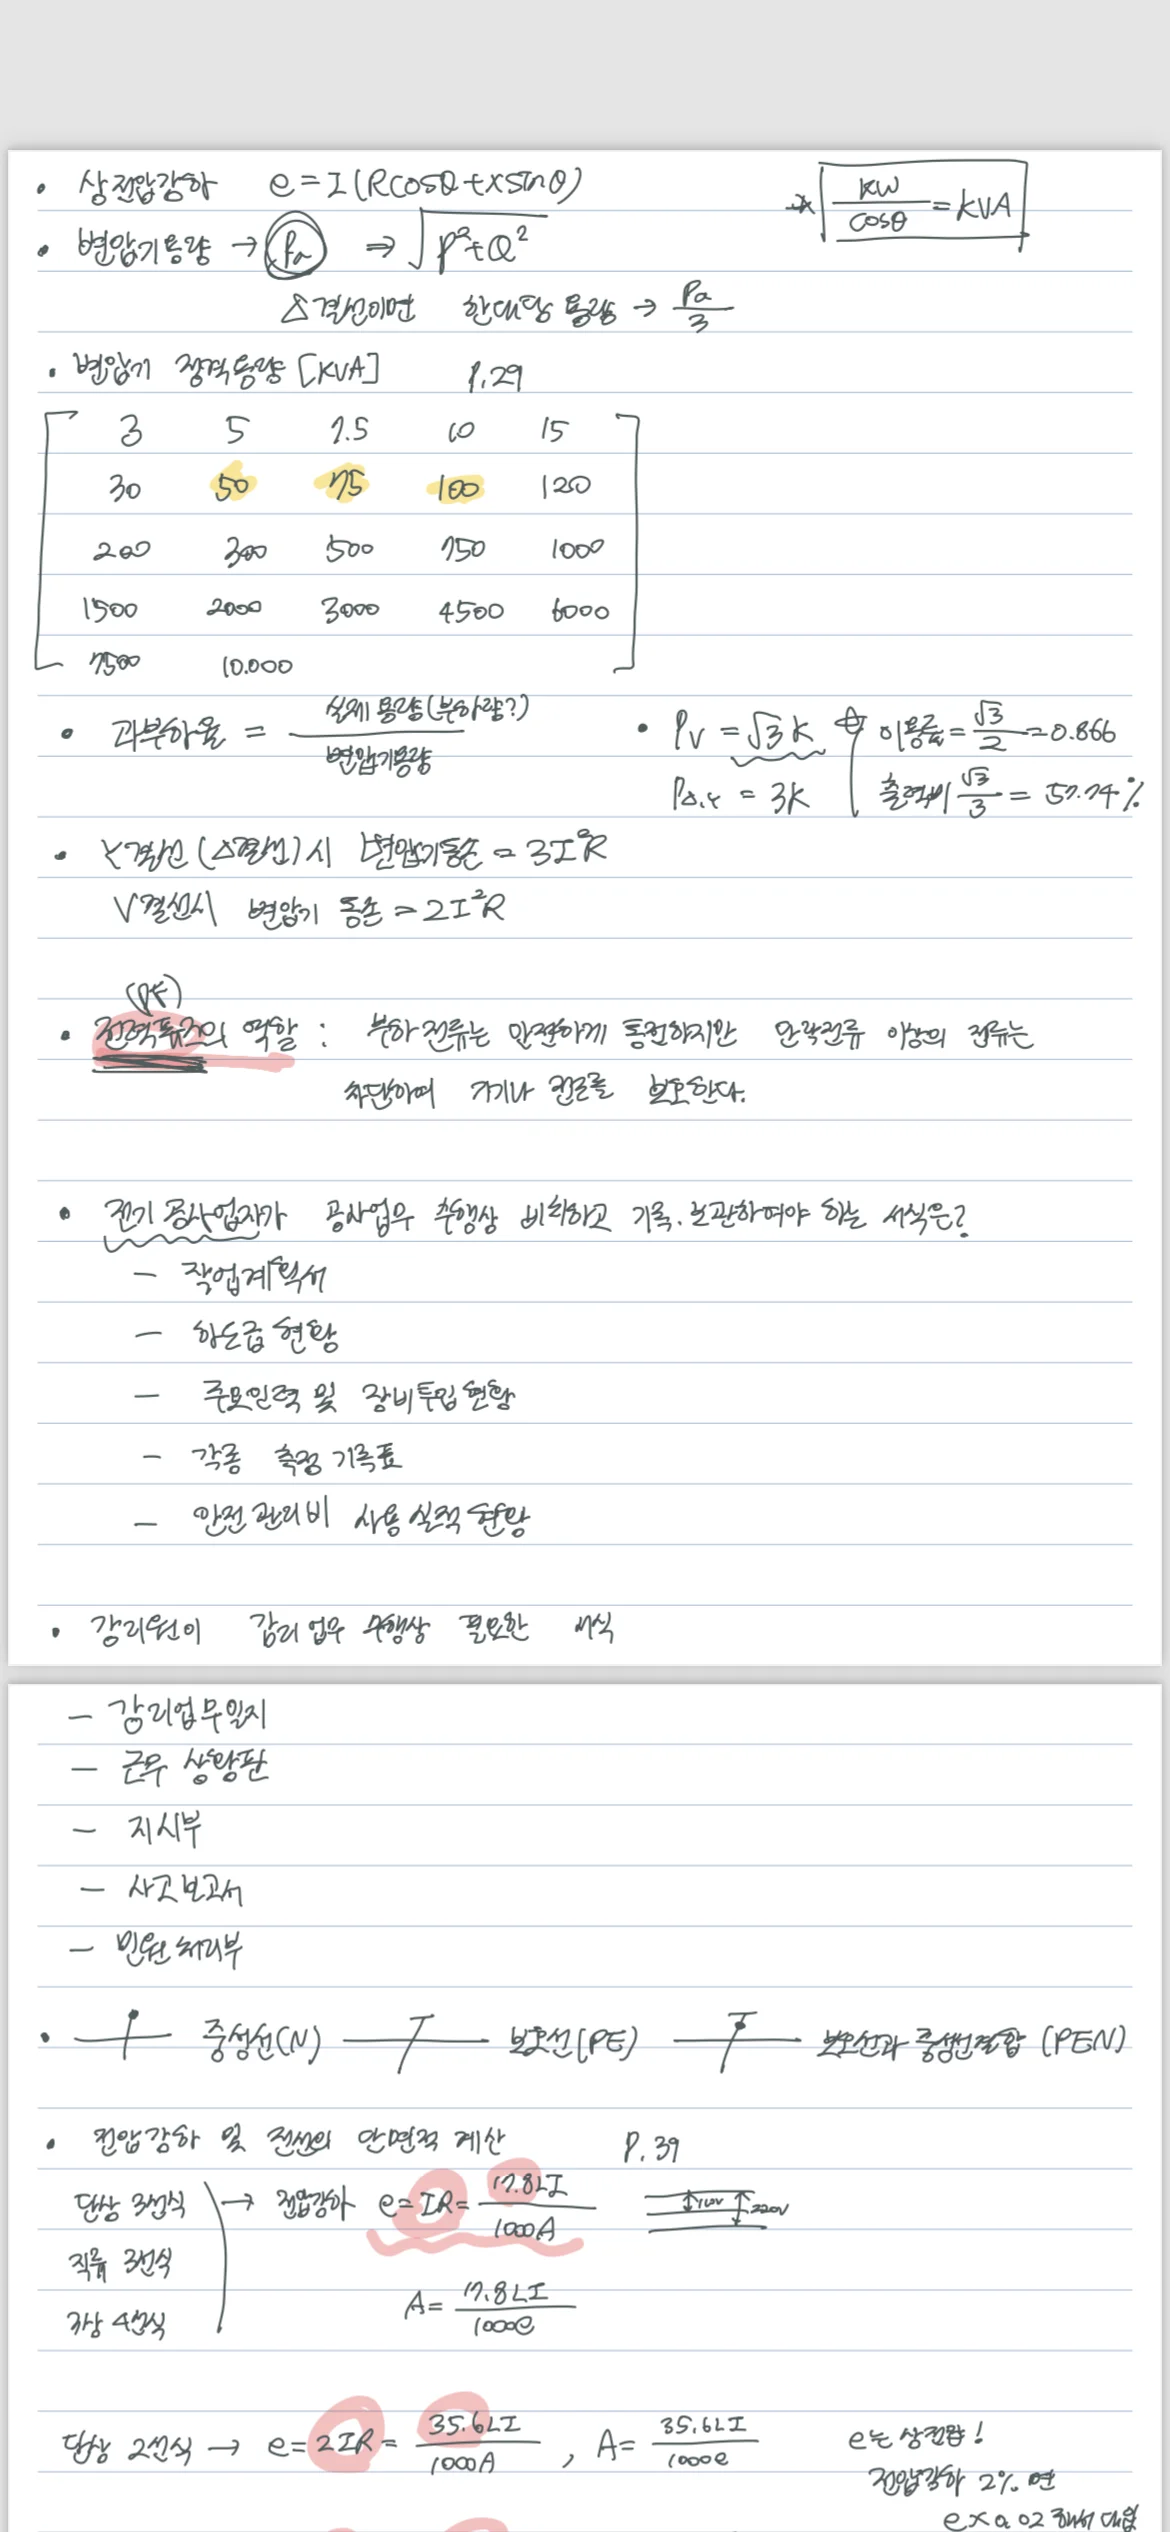 • 상전압강하 e = I(Rcosθ+xsinθ) * kW/cosθ = kVA
• 변압기용량 → Pa ⇒ √P²+Q²
△결선이면 한대당 용량 → Pa/3
• 변압기 정격용량 [KVA] P.29
3 5 7.5 10 15
30 50 75 100 120
200 300 500 750 1000
1500 2000 3000 4500 6000
7500 10.000
• 과부하율 = 실제 용량(부하량?)/변압기용량 • Pv = √3K 이용률 = √3/2 = 0.866
P△,Y = 3K 출력비 √3/3 = 57.74%
• Y결선(△결선)시 변압기동손 = 3I²R
V결선시 변압기 동손 = 2I²R
(PF)
• 전력퓨즈의 역할 : 부하전류는 안전하게 통전하지만 단락전류 이상의 전류는
차단하여 기기나 전로를 보호한다.
• 전기 공사업자가 공사업무 수행상 비치하고 기록.보관하여야 하는 서식은?
– 작업계획서
– 하도급 현황
– 주요인력 및 장비투입 현황
– 각종 측정 기록표
– 안전관리비 사용실적 현황
• 감리원이 감리업무 수행상 필요한 서식
– 감리업무일지
– 근무 상황판
– 지시부
– 사고보고서
– 민원처리부
• 중성선(N) 보호선(PE) 보호선과 중성선결합 (PEN)
• 전압강하 및 전선의 단면적 계산 P.39
단상 3선식 → 전압강하 e = IR = 17.8LI/1000A 110V 220V
직류 3선식
A = 17.8LI/1000e
3상 4선식
단상 2선식 → e = 2IR = 35.6LI/1000A , A = 35.6LI/1000e e는 상전압!
전압강하 2%면
e×0.02 해서 대입